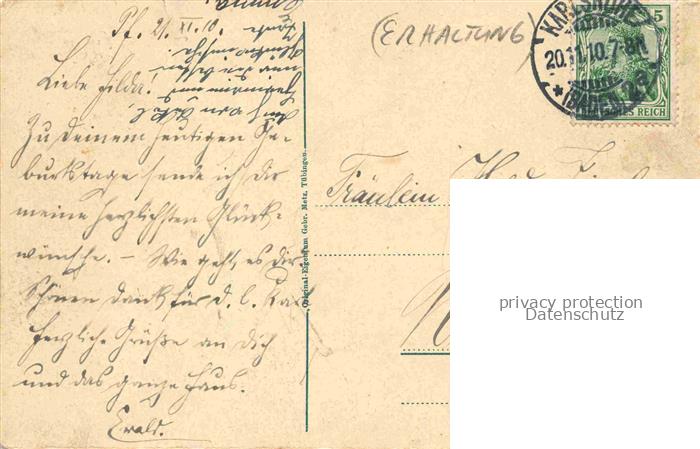 Pf. 21. XI. 10.
Liebe Hilda!
Zu Deinem heutigen Ge-
burtstage sende ich Dir
meine herzlichsten Glück-
wünsche. – Wie geht es Dir?
Schönen Dank für d. l. Kart
herzliche Grüße an Dich
und das ganze Haus.
Ewald.
(ERHALTUNG)
KARLSRUHE
20.11.10.7-8N
(BADEN)
5
DEUTSCHES REICH
Original-Eigentum Gebr. Metz, Tübingen.
Fräulein
privacy protection
Datenschutz